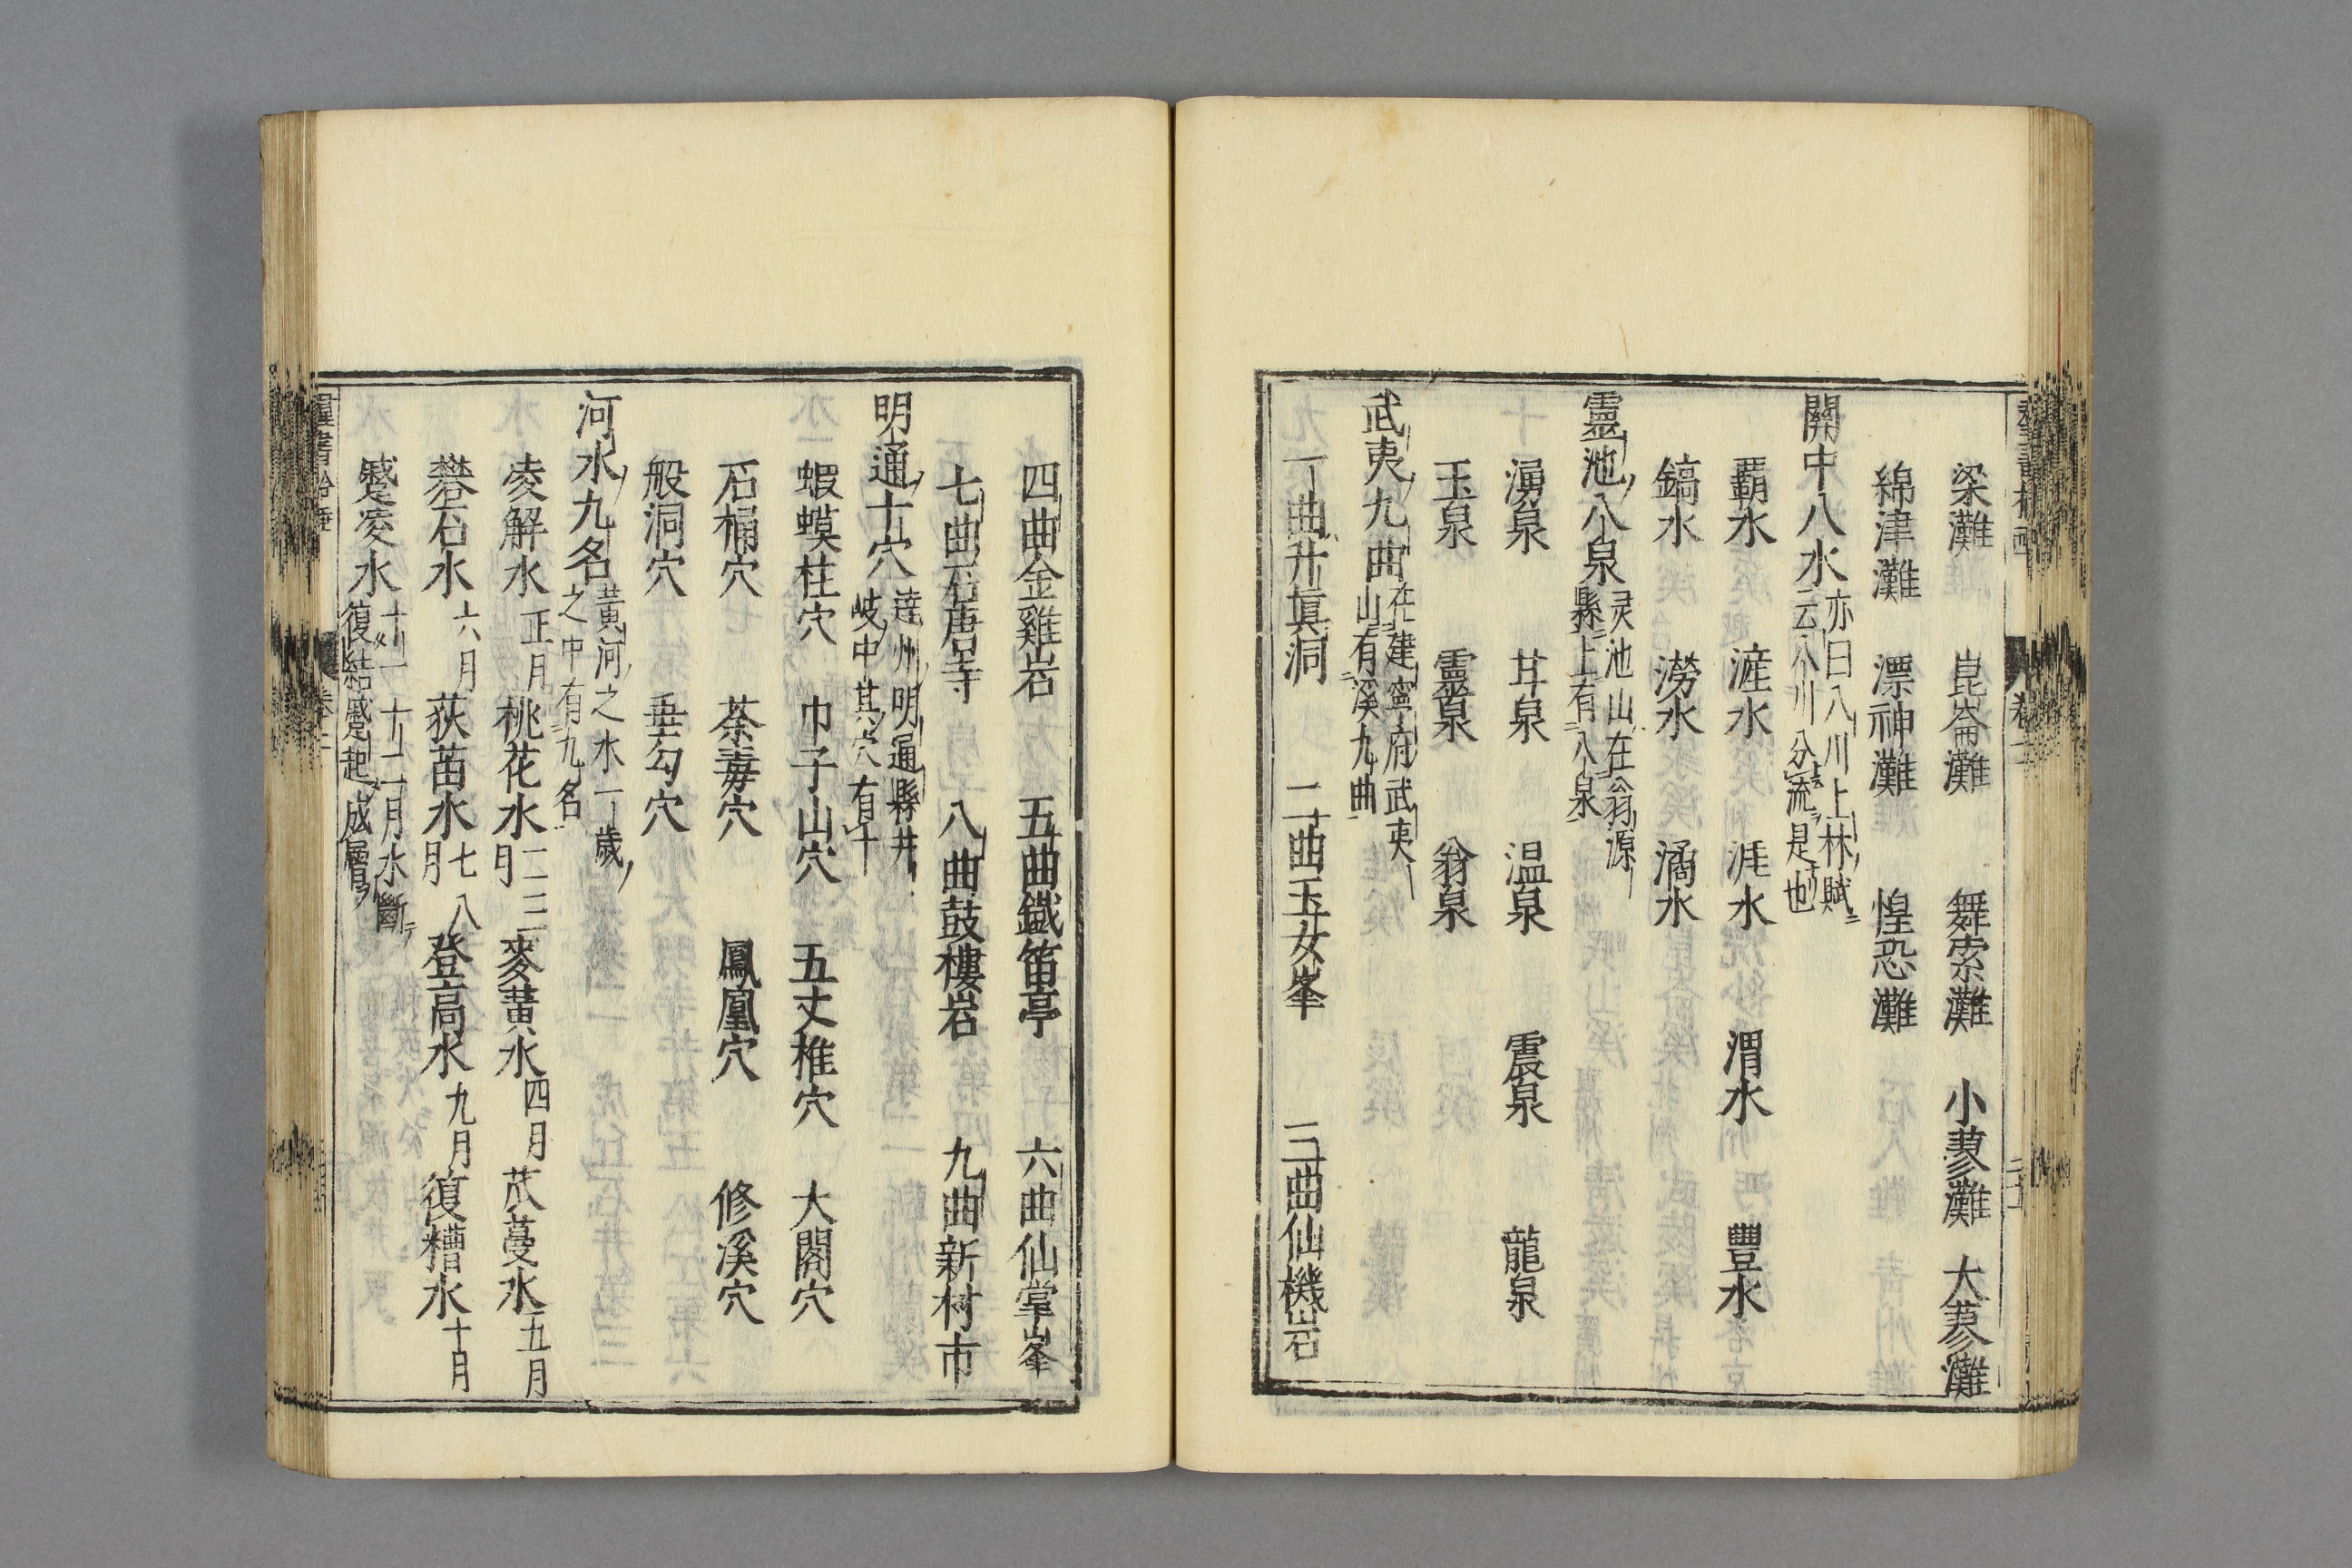 梁灘　崑崙灘　舞索灘　小蓼灘　大蓼灘
綿津灘　漂神灘　惶恐灘
關中八水亦曰八川上林賦云八川分流是也
覇水　滻水　涇水　渭水　豐水
鎬水　澇水　潏水
靈池八泉灵池山在翁源縣上有八泉
湧泉　甘泉　温泉　震泉　龍泉
玉泉　靈泉　翁泉
武夷九曲在建寧府武夷山有溪九曲
一曲升真洞　二曲玉女峯　三曲仙機岩
四曲金雞岩　五曲鐵笛亭　六曲仙掌峯
七曲石唐寺　八曲鼓樓岩　九曲新村市
明通十穴達州明通縣井岐中其穴有十
蝦蟆柱穴　巾子山穴　五丈椎穴　大閣穴
石桶穴　荼毒穴　鳳凰穴　修溪穴
般洞穴　垂勾穴
河水九名黄河之水一歳之中有九名
凌解水正月　桃花水二三月　麥黄水四月　苽蔓水五月
礬石水六月　荻苗水七八月　登高水九月　復槽水十月
蹙凌水十一十二月水斷復結蹙起成層